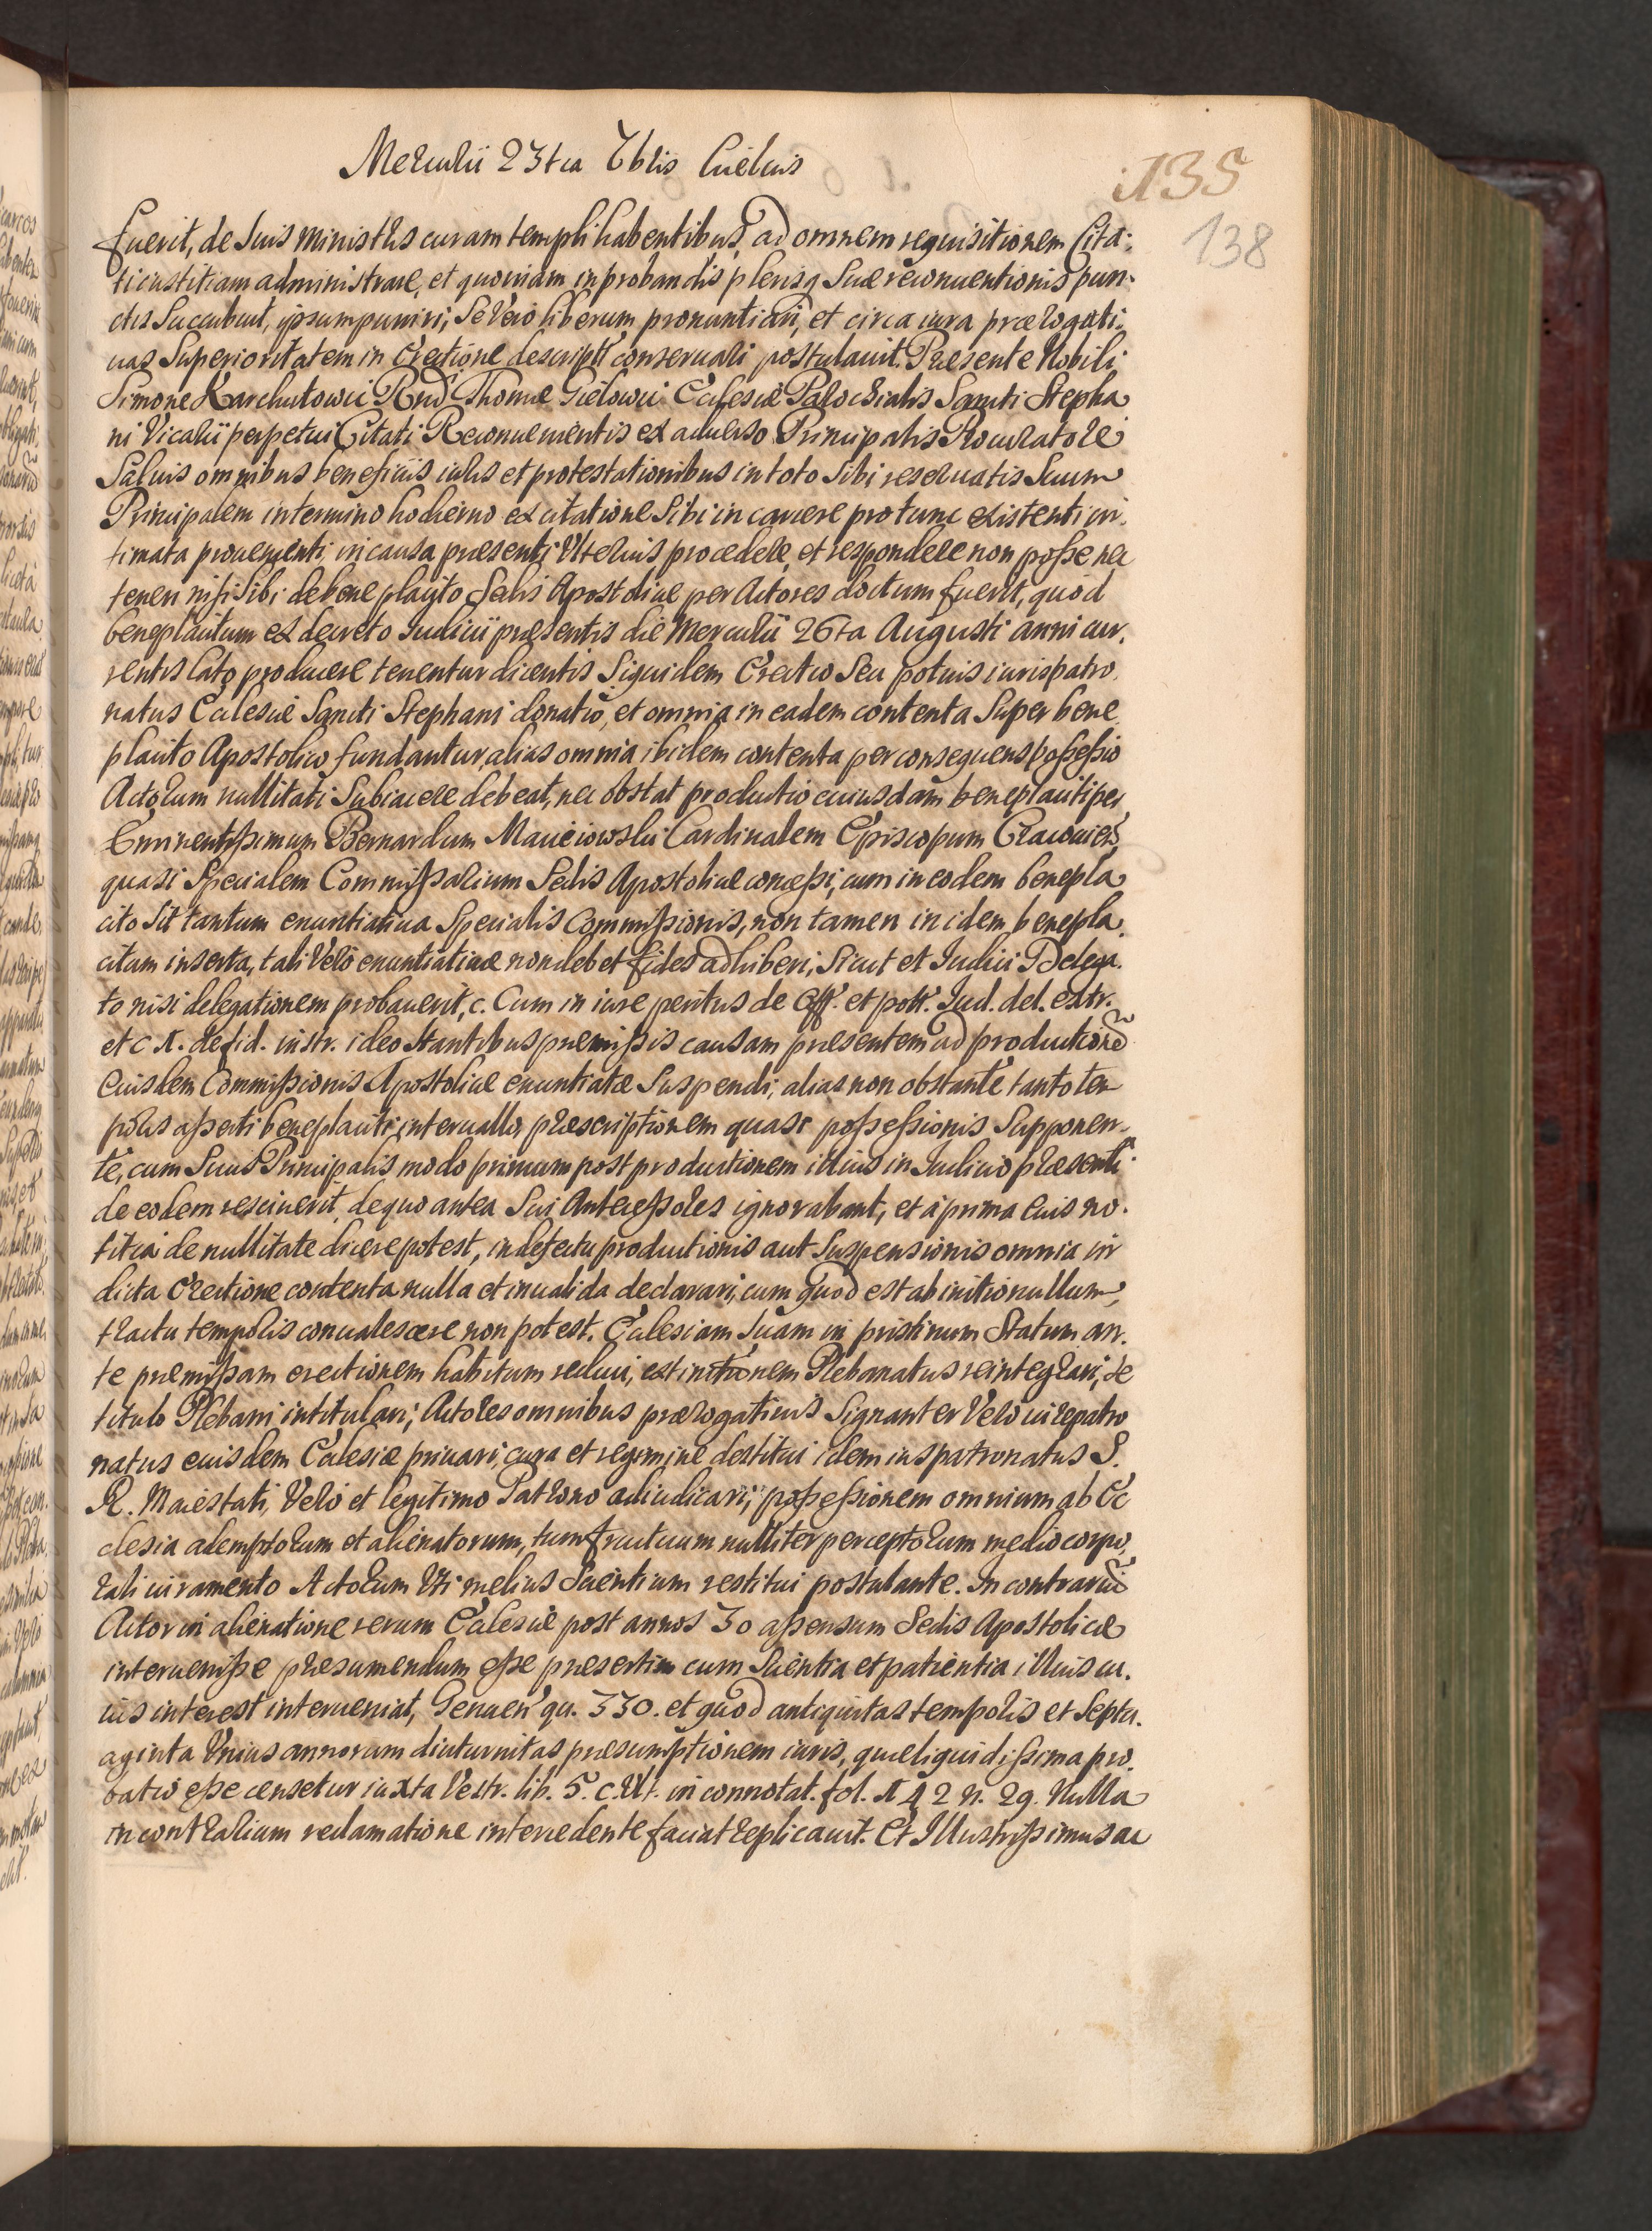 Mercurii 23tia 7bris Cuelcis
135
138
fuerit, de Suis ministris curam templi habentibus, ad omnem requisitionem Cita-
ti iustitiam administrare, et quoniam in probandis plerisq Suae reconuentionis pun-
ctis Succubuit, ipsum puniri; Se Vero liberum pronuntiari, et circa iura praerogati-
uas Superioritatem in Erectione descript conseruari postulauit. Praesente Nobili
Simone Karchutowic Rnd Thomae Gielowic Ecclesiae Parochialis Sancti Stepha
ni Vicarii perpetui Citati Reconuenientis ex aduerso Principalis Procuratore
Saluis omnibus beneficiis iuris et protestationibus in toto Sibi reseruatis Suum
Principalem in termino hodierno ex citatione Sibi in carcere pro tunc existenti in-
timata prouenienti in causa praesenti Vlterius procedere, et respondere non posse nec
teneri nisi Sibi de beneplacito Sedis Apostolicae per Actores doctum fuerit, quod
beneplacitum ex decreto Iudicii praesentis die Mercurii 26ta Augusti anni cur-
rentis lato producere tenentur dicentis Siquidem Erectio Seu potius iurispatro-
natus Ecclesiae Sancti Stephani donatio, et omnia in eadem contenta Super bene
placito Apostolico fundantur, alias omnia ibidem contenta per consequens possessio
Actorum nullitati Subiacere debeat, nec obstat productio cuiusdam beneplaciti per
Eminentissimum Bernardum Macieiowski Cardinalem Episcopum Cracouien
quasi Specialem Commissarium Sedis Apostolicae concessi, cum in eodem benepla
cito Sit tantum enuntiatiua Specialis Commissionis, non tamen in idem benepla-
citum inserta, tali Vero enuntiatiuae non debet fides adhiberi, Sicut et Iudici Delega-
to nisi delegationem probauerit, c. Cum in iure peritus de Off. et pott. Iud. del. extr.
et c 1. de fid. instr. ideo Stantibus praemissis causam praesentem ad productione
Eiusdem Commissionis Apostolicae enuntiatae Suspendi, alias non obstante tanto tem
poris asserti beneplaciti interuallo, praescriptionem quasi possessionis Supponen-
te, cum Suus Principalis modo primum post productionem illius in Iudicio praesenti
de eodem resciuerit, de quo antea Sui Antecessores ignorabant, et a prima Eius no-
titia de nullitate dicere potest, in defectu productionis aut Suspensionis omnia in
dicta Erectione contenta nulla et inualida declarari, cum quod est ab initio nullum,
tractu temporis conualescere non potest. Ecclesiam Suam in pristinum Statum an-
te praemissam erectionem habitum reduci, extinctionem Plebanatus reintegrari, Se
titulo Plebani intitulari; Actores omnibus praerogatiuis Signanter Vero iurepatro
natus eiusdem Ecclesiae priuari, cura et regimine destitui idem iuspatronatus S.
R. Maiestati, Vero et legitimo Patrono adiudicari, possessionem omnium ab Ec
clesia ademptorum et alienatorum, tum fructuum nulliter perceptorum medio corpo
rali iuramento Actorum Vti melius Scientium restitui postulante. In contrariu
Actor in alienatione rerum Ecclesiae post annos 30 assensum Sedis Apostolicae
interuenisse praesumendum esse praesertim cum Scientia et patientia illius cu-
ius interest interueniat, Genuen qu. 330. et quod antiquitas temporis et Septu-
aginta Vnius annorum diuturnitas praesumptionem iuris, quae liquidissima pro-
batio esse censetur iuxta Vestr. lib. 5. c. Vlt. in connotat. fol. 142 n. 29. Nulla
in contrarium reclamatione intercedente faciat replicauit. Et Illustrissimus ac